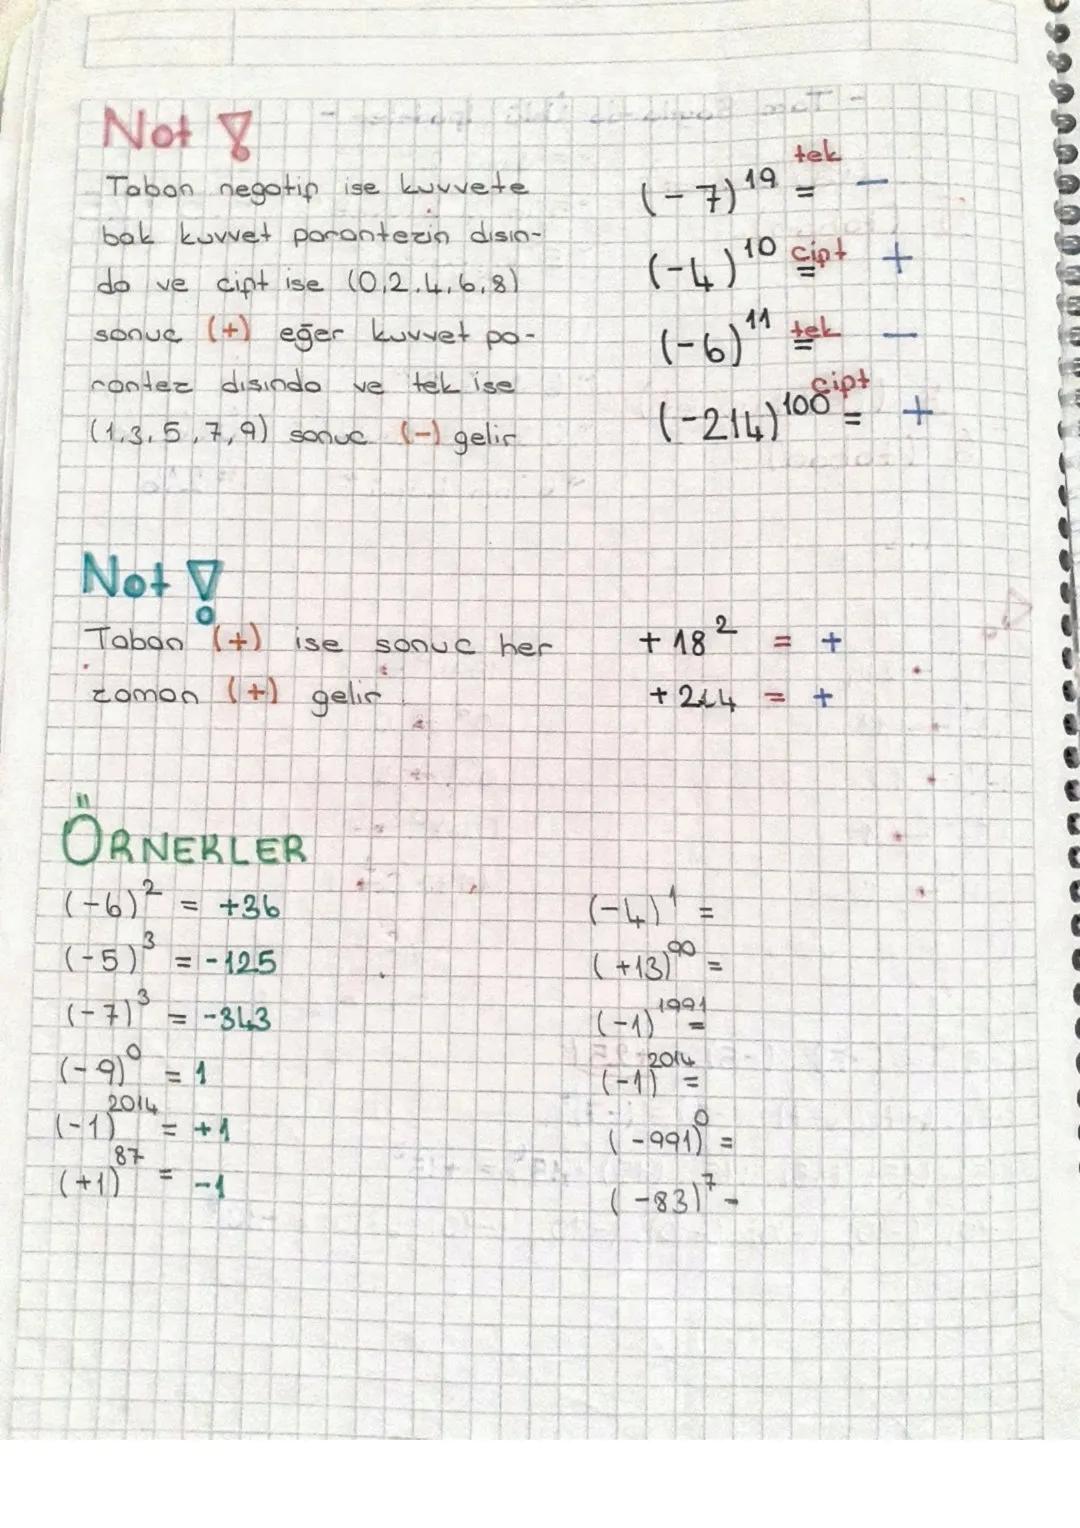 Not !
Taban negatif ise kuvvete
bak kuvvet parantezin dısın-
da ve çift ise (0,2,4,6,8)
sonuc (+) eğer kuvvet pa-
rantez dısında ve tek ise
(1,3,5,7,9) sonuc (-) gelir
(-7)¹⁹ tek = -
(-4)¹⁰ çift = +
(-6)¹¹ tek = -
(-214)¹⁰⁰ çift = +
Not !
Taban (+) ise sonuc her
zaman (+) gelir.
+18² = +
+214 = +
ÖRNEKLER
(-6)² = +36
(-5)³ = -125
(-7)³ = -343
(-9)⁰ = 1
(-1)²⁰¹⁴ = +1
(+1)⁸⁷ = -1
(-4)¹ =
(+13)⁹⁰ =
(-1)¹⁹⁹¹ =
(-1)²⁰¹⁴ =
(-991)⁰ =
(-83)⁷ -